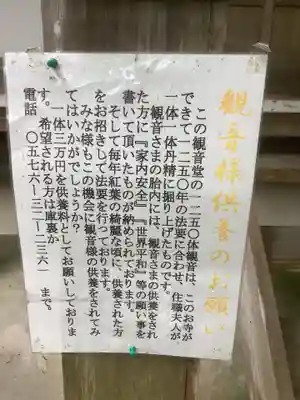 観音様供音のお願い
この観音堂の一二五〇体観音は、このお寺が
できて一二五〇年の法要に合わせ、住職夫人が
一体一体丹精に掘り上げたものです。
観音さまの胎内には、観音さまの供養をされ
た方に『家内安全』『世界平和』等の願い事を
書いて頂いたものが納められております。
そして毎年紅葉の綺麗な頃に、供養された方
をお招きして法要を行っております。
みな様もこの機会に観音様の供養をされてみ
てはいかがでしょうか？
一体三万円を供養料としてお願いしておりま
す。希望される方は庫裏か
電話 〇五七六−三二−二三六一 まで。